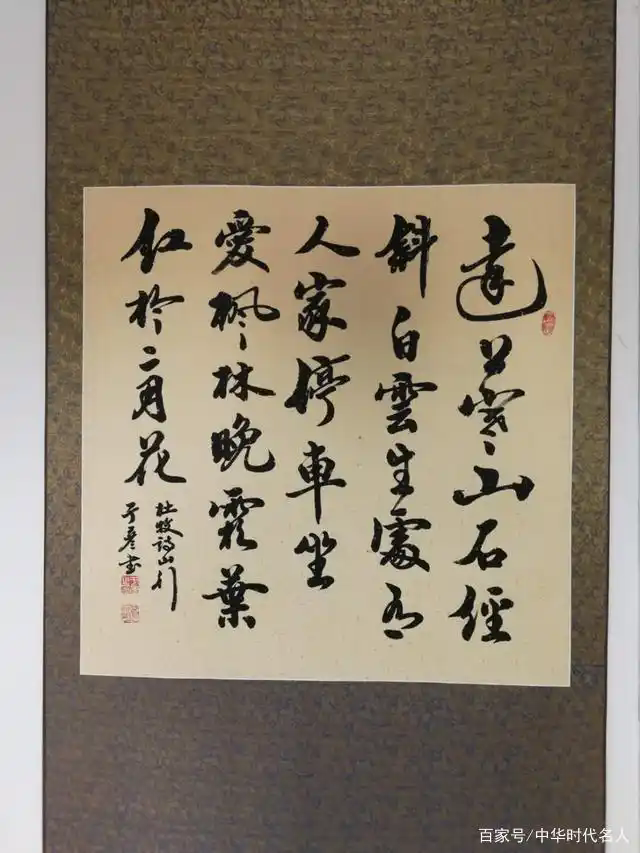 遠上寒山石經
斜白雲生處有
人家停車坐
愛楓林晚霜葉
紅於二月花
杜牧詩山行
彥書
百家号/中华时代名人